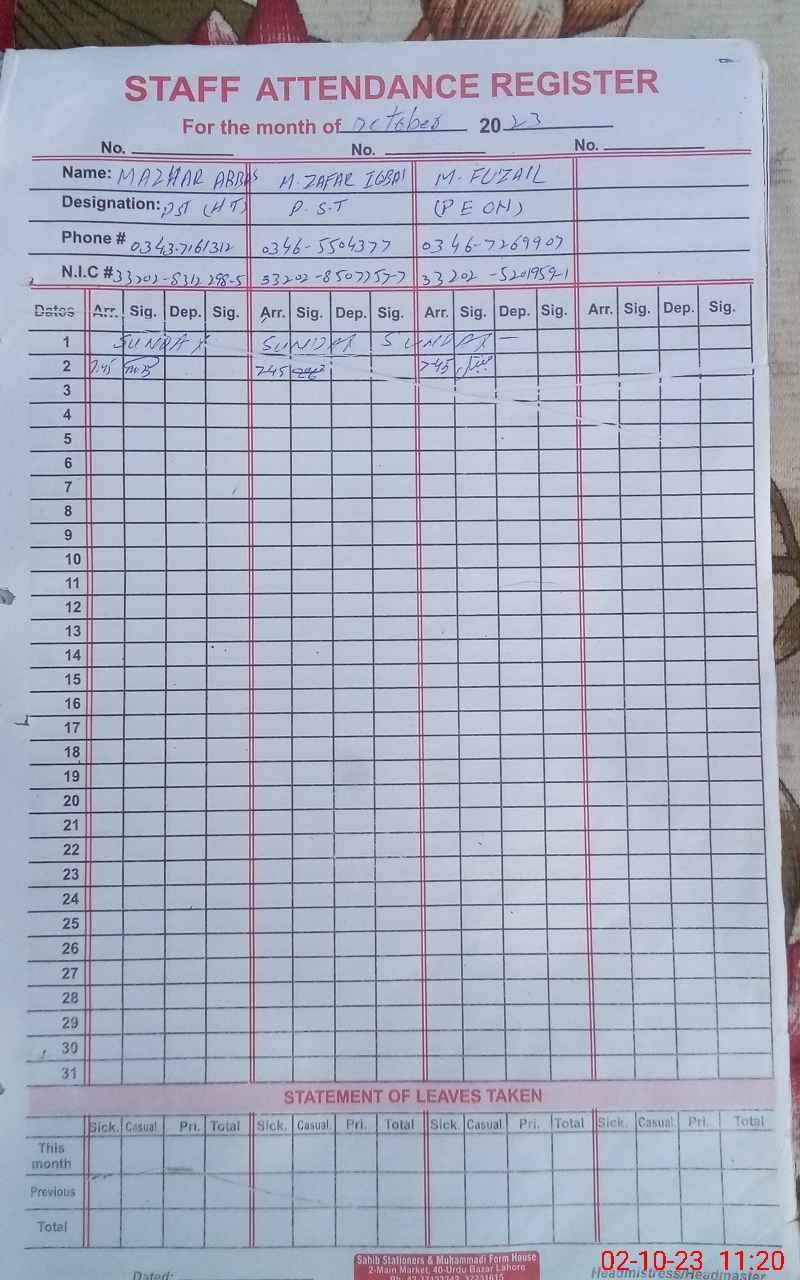 STAFF ATTENDANCE REGISTER
For the month of October 2023
No. No. No.
Name: MAZHAR ABBAS M. ZAFAR IQBAL M. FUZAIL
Designation: PST (HT) P.S.T (PEON)
Phone # 0343-7161312 0346-5504377 0346-7269907
N.I.C # 33202-8312298-5 33202-8507757-7 33202-5201959-1
Dates Arr. Sig. Dep. Sig. Arr. Sig. Dep. Sig. Arr. Sig. Dep. Sig. Arr. Sig. Dep. Sig.
1 SUNDAY SUNDAY SUNDAY
2 7.45 745 745
3
4
5
6
7
8
9
10
11
12
13
14
15
16
17
18
19
20
21
22
23
24
25
26
27
28
29
30
31
STATEMENT OF LEAVES TAKEN
Sick. Casual Pri. Total Sick. Casual Pri. Total Sick. Casual Pri. Total Sick. Casual Pri. Total
This
month
Previous
Total
Dated:
Sahib Stationers & Muhammadi Form House
2-Main Market, 40-Urdu Bazar Lahore
Headmistress/Headmaster
02-10-23 11:20